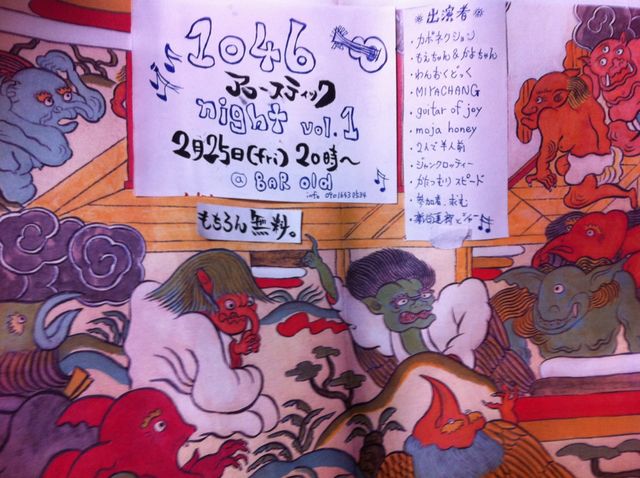 1046
アコースティック
night vol.1
2月25日(fri) 20時〜
@ BAR old
もちろん無料。
出演者
・カポネクション
・もえちゃん&かよちゃん
・わんおくどっく
・MIYACHANG
・guitar of joy
・moja honey
・2人で半人前
・ジャンクロッティー
・かたつむりスピード
・参加者、求む